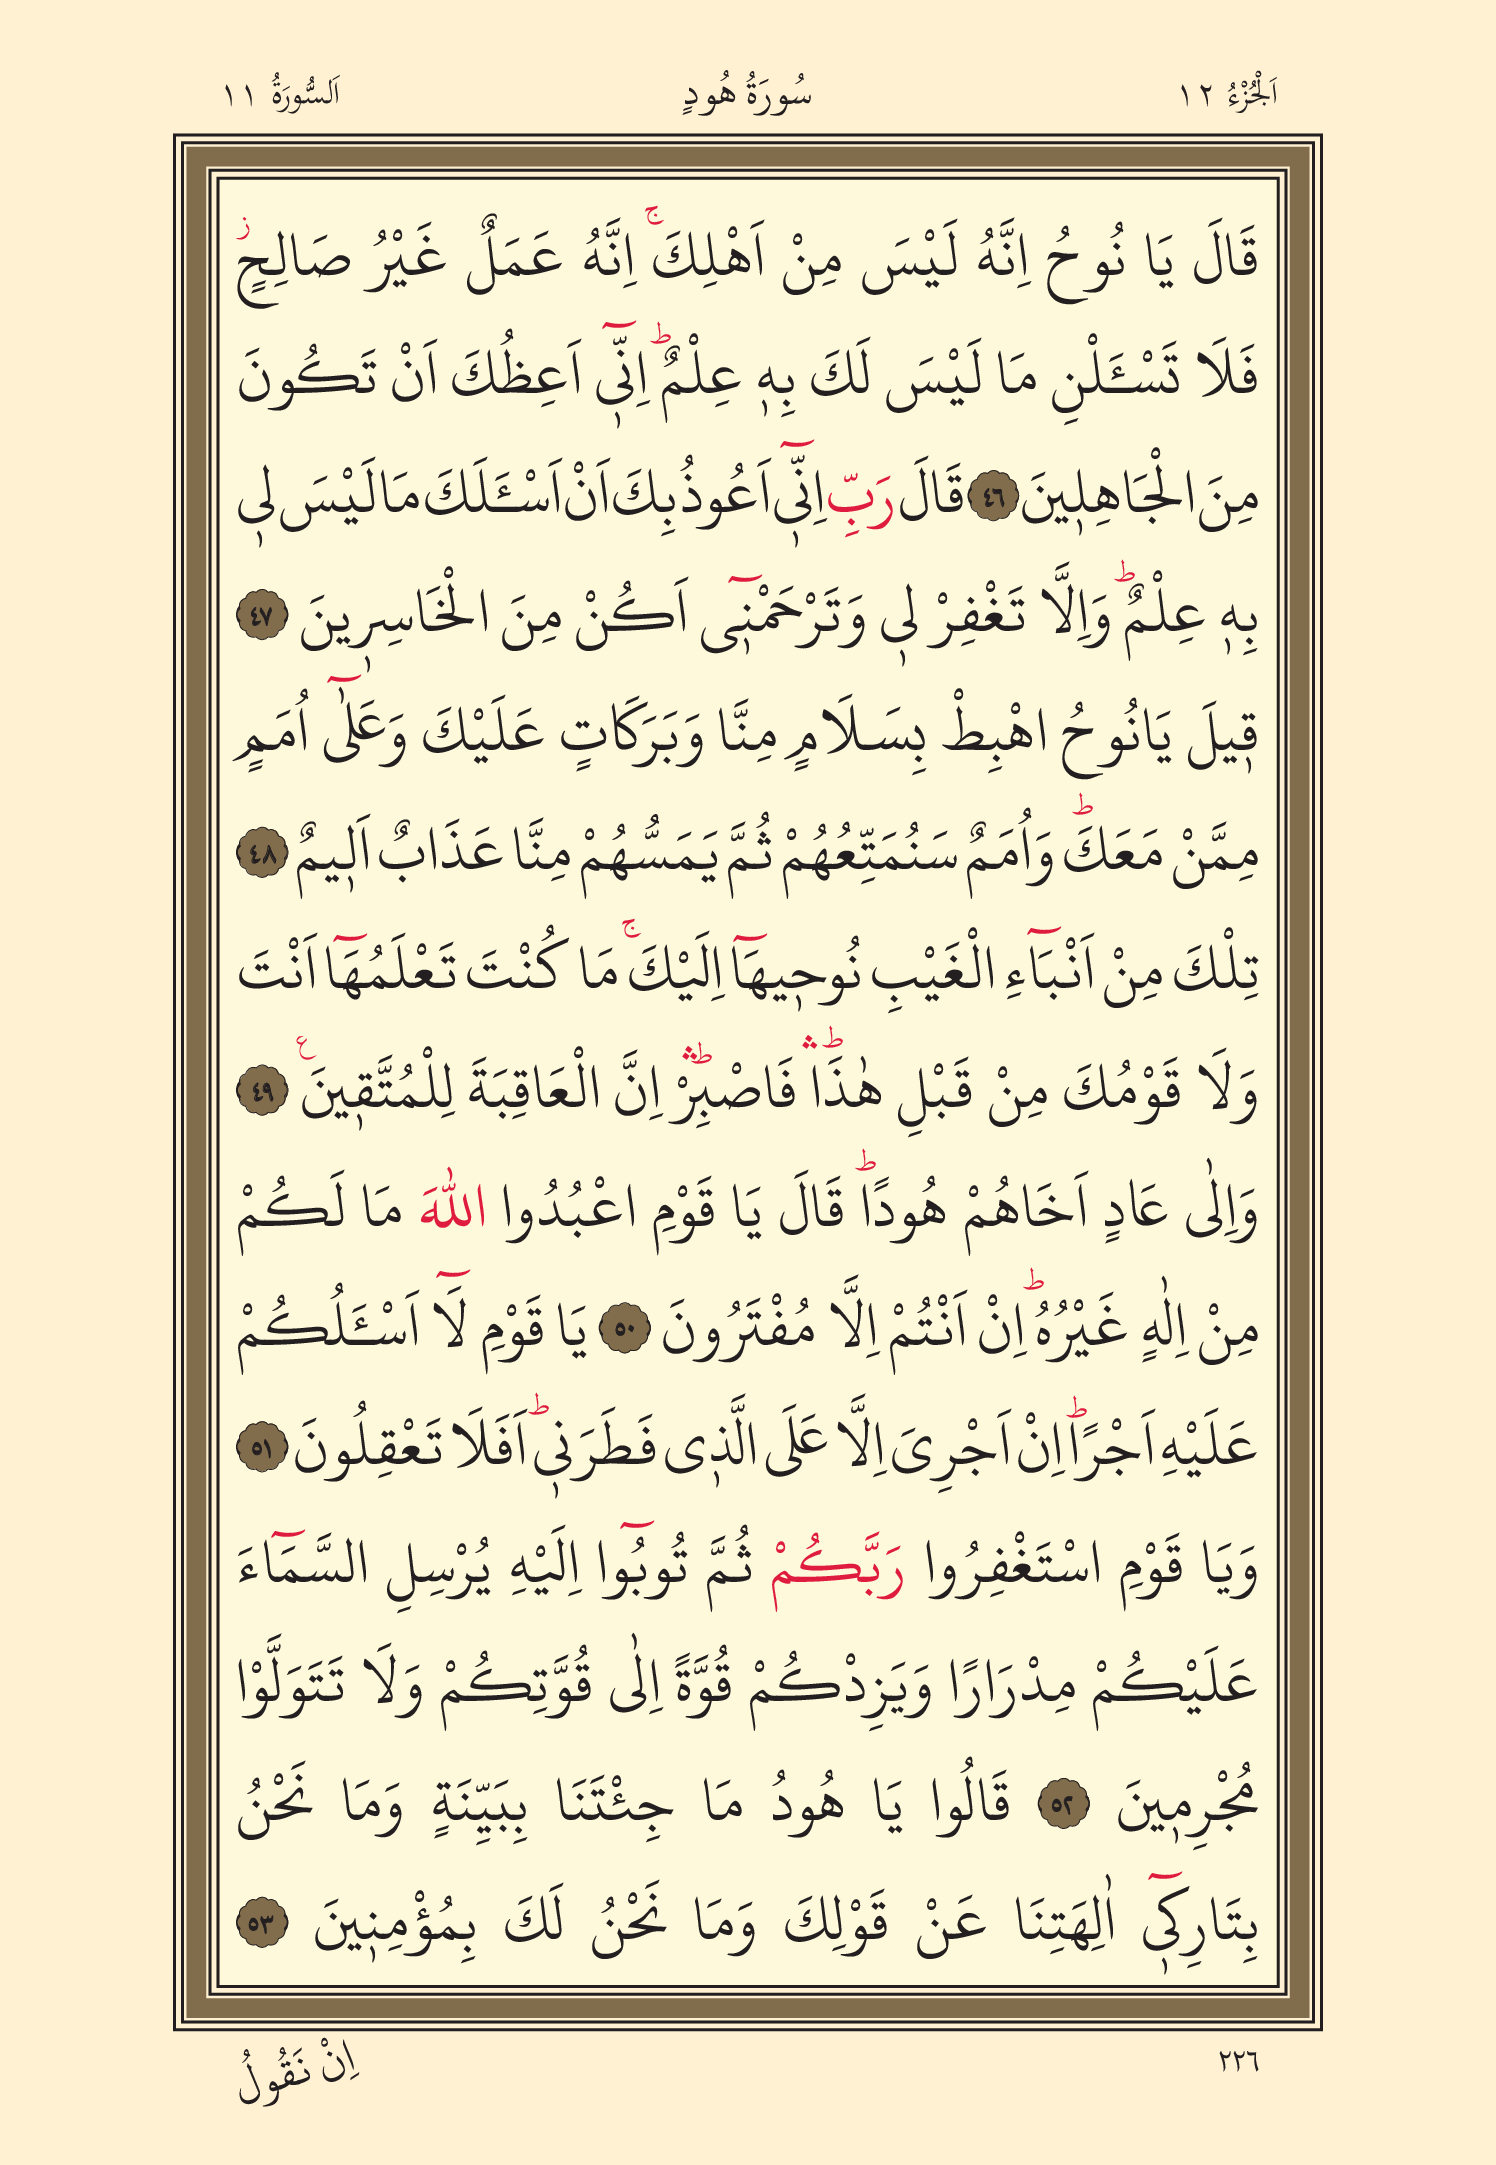 اَلْجُزْءُ ١٢ سُورَةُ هُودٍ اَلسُّورَةُ ١١
قَالَ يَا نُوحُ اِنَّهُ لَيْسَ مِنْ اَهْلِكَۚ اِنَّهُ عَمَلٌ غَيْرُ صَالِحٍۘ
فَلَا تَسْـَٔلْنِ مَا لَيْسَ لَكَ بِه۪ عِلْمٌۜ اِنّ۪ٓي اَعِظُكَ اَنْ تَكُونَ
مِنَ الْجَاهِل۪ينَ ﴿٤٦﴾ قَالَ رَبِّ اِنّ۪ٓي اَعُوذُ بِكَ اَنْ اَسْـَٔلَكَ مَا لَيْسَ ل۪ي
بِه۪ عِلْمٌۜ وَاِلَّا تَغْفِرْ ل۪ي وَتَرْحَمْن۪ٓي اَكُنْ مِنَ الْخَاسِر۪ينَ ﴿٤٧﴾
ق۪يلَ يَانُوحُ اهْبِطْ بِسَلَامٍ مِنَّا وَبَرَكَاتٍ عَلَيْكَ وَعَلٰٓى اُمَمٍ
مِمَّنْ مَعَكَۜ وَاُمَمٌ سَنُمَتِّعُهُمْ ثُمَّ يَمَسُّهُمْ مِنَّا عَذَابٌ اَل۪يمٌ ﴿٤٨﴾
تِلْكَ مِنْ اَنْبَٓاءِ الْغَيْبِ نُوح۪يهَٓا اِلَيْكَۚ مَا كُنْتَ تَعْلَمُهَٓا اَنْتَ
وَلَا قَوْمُكَ مِنْ قَبْلِ هٰذَاۜۛ فَاصْبِرْۜۛ اِنَّ الْعَاقِبَةَ لِلْمُتَّق۪ينَ ع ﴿٤٩﴾
وَاِلٰى عَادٍ اَخَاهُمْ هُودًاۜ قَالَ يَا قَوْمِ اعْبُدُوا اللّٰهَ مَا لَكُمْ
مِنْ اِلٰهٍ غَيْرُهُۜ اِنْ اَنْتُمْ اِلَّا مُفْتَرُونَ ﴿٥٠﴾ يَا قَوْمِ لَٓا اَسْـَٔلُكُمْ
عَلَيْهِ اَجْرًاۜ اِنْ اَجْرِيَ اِلَّا عَلَى الَّذ۪ي فَطَرَن۪يۜ اَفَلَا تَعْقِلُونَ ﴿٥١﴾
وَيَا قَوْمِ اسْتَغْفِرُوا رَبَّكُمْ ثُمَّ تُوبُٓوا اِلَيْهِ يُرْسِلِ السَّمَٓاءَ
عَلَيْكُمْ مِدْرَارًا وَيَزِدْكُمْ قُوَّةً اِلٰى قُوَّتِكُمْ وَلَا تَتَوَلَّوْا
مُجْرِم۪ينَ ﴿٥٢﴾ قَالُوا يَا هُودُ مَا جِئْتَنَا بِبَيِّنَةٍ وَمَا نَحْنُ
بِتَارِك۪ٓي اٰلِهَتِنَا عَنْ قَوْلِكَ وَمَا نَحْنُ لَكَ بِمُؤْمِن۪ينَ ﴿٥٣﴾
٢٢٦ اِنْ نَقُولُ